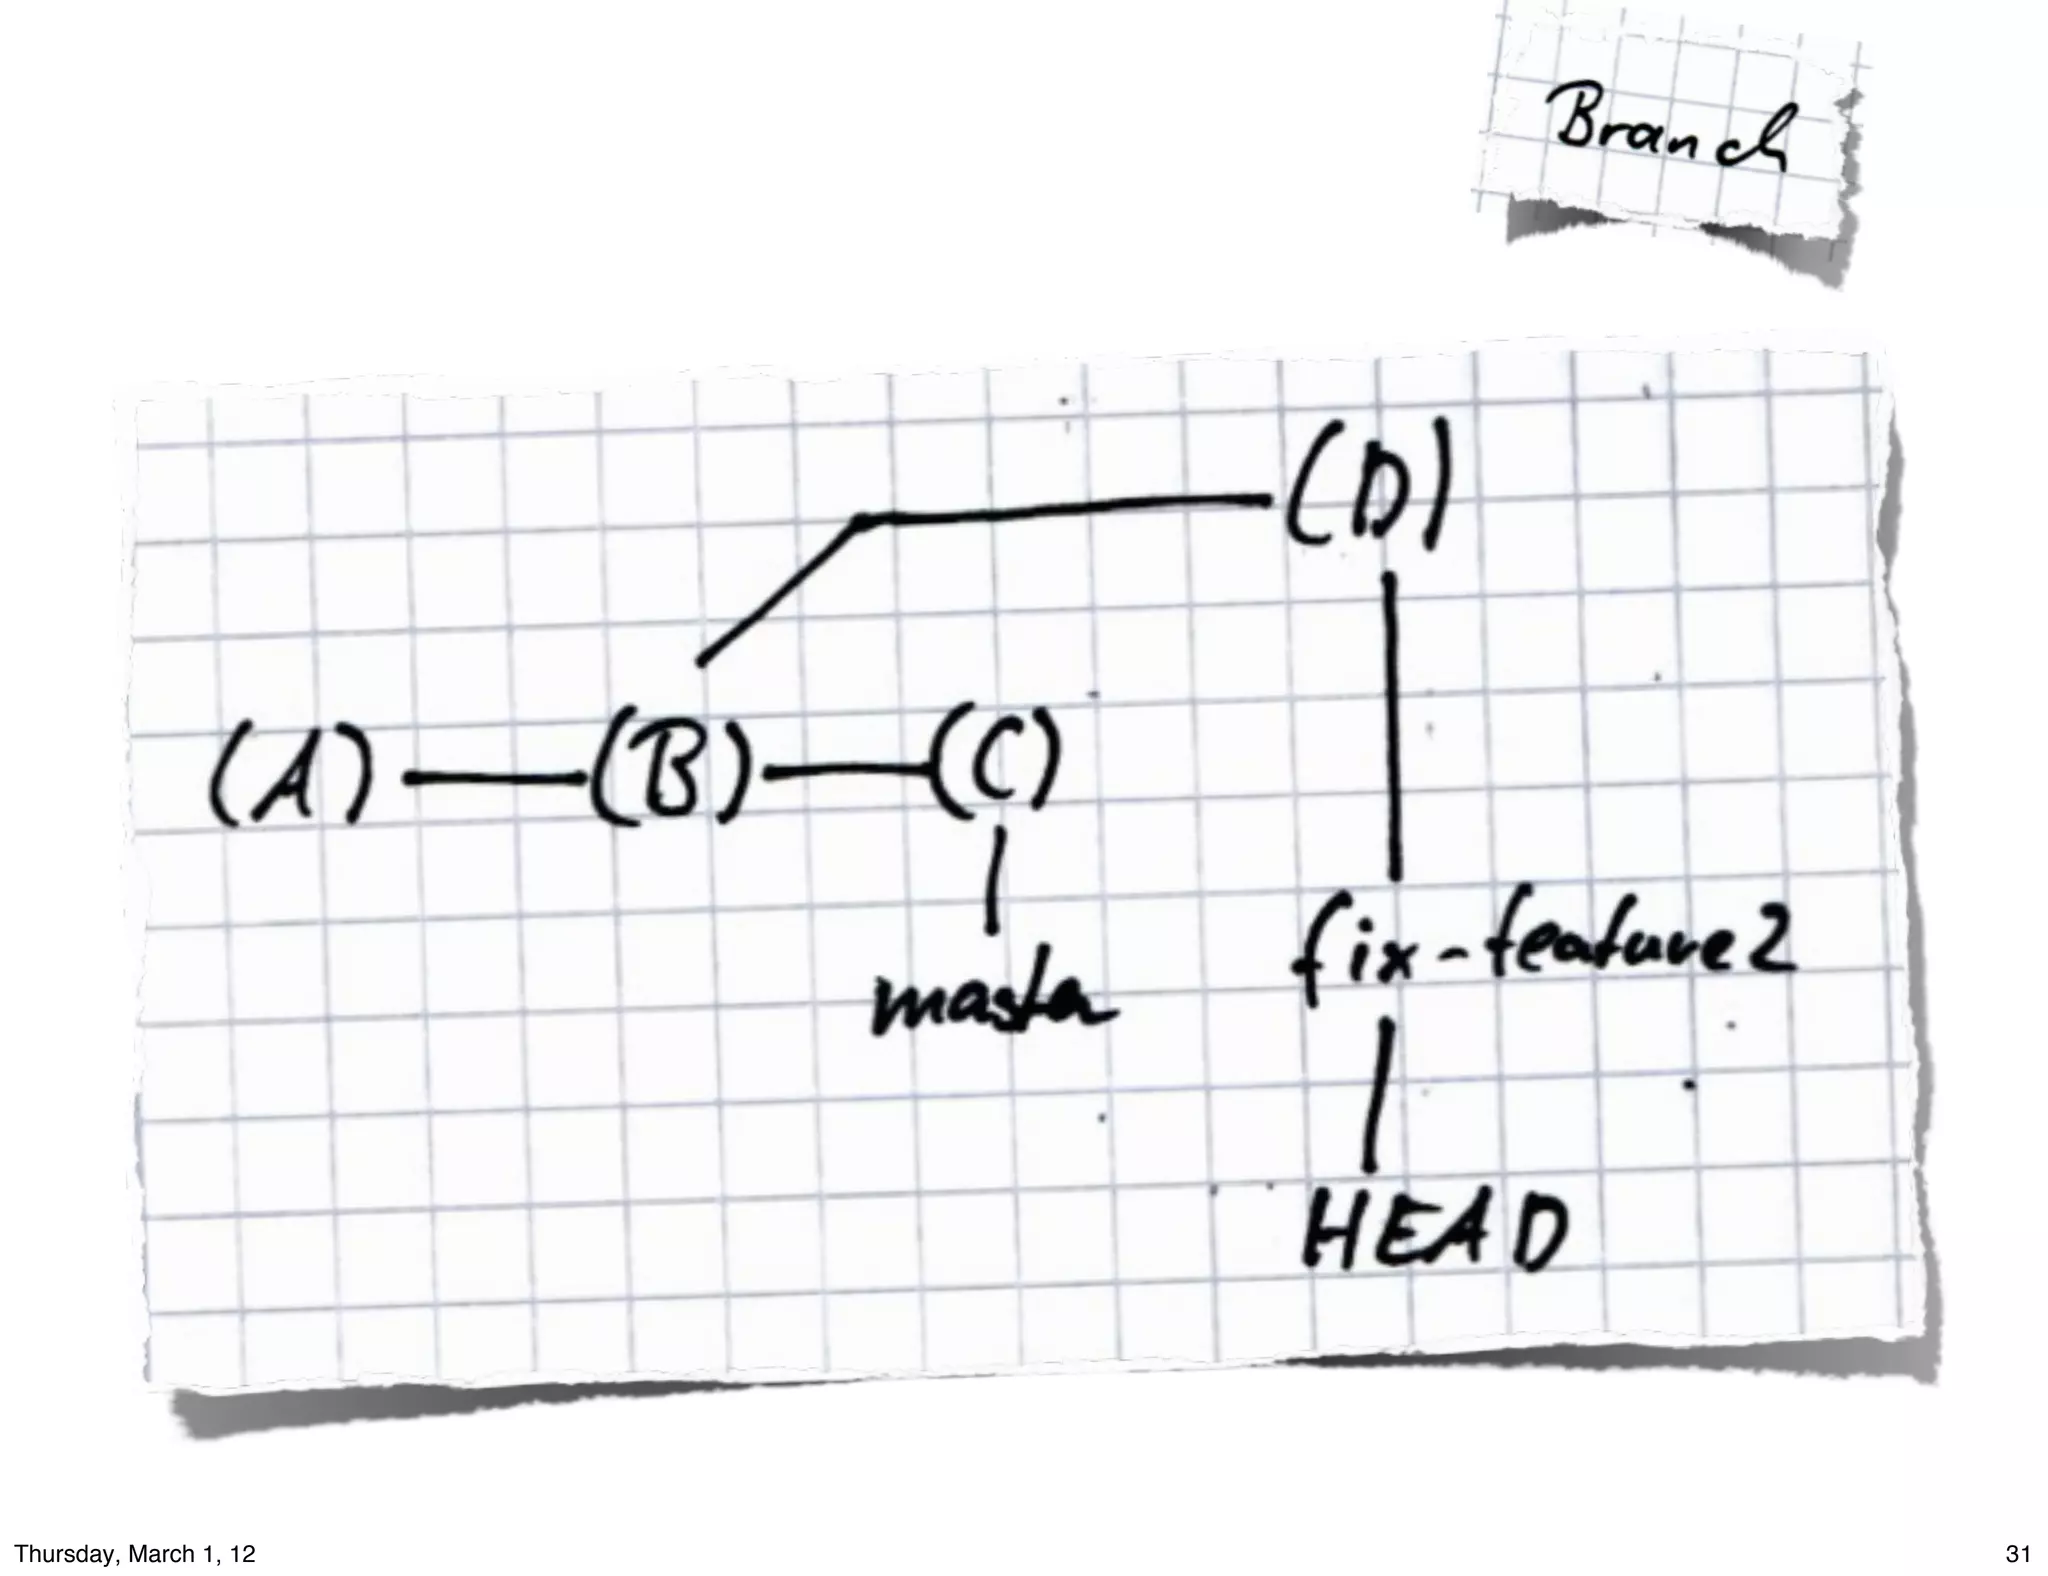 Branch
(D)
(A) (B) (C)
fix-feature2
master
HEAD
Thursday, March 1, 12
31